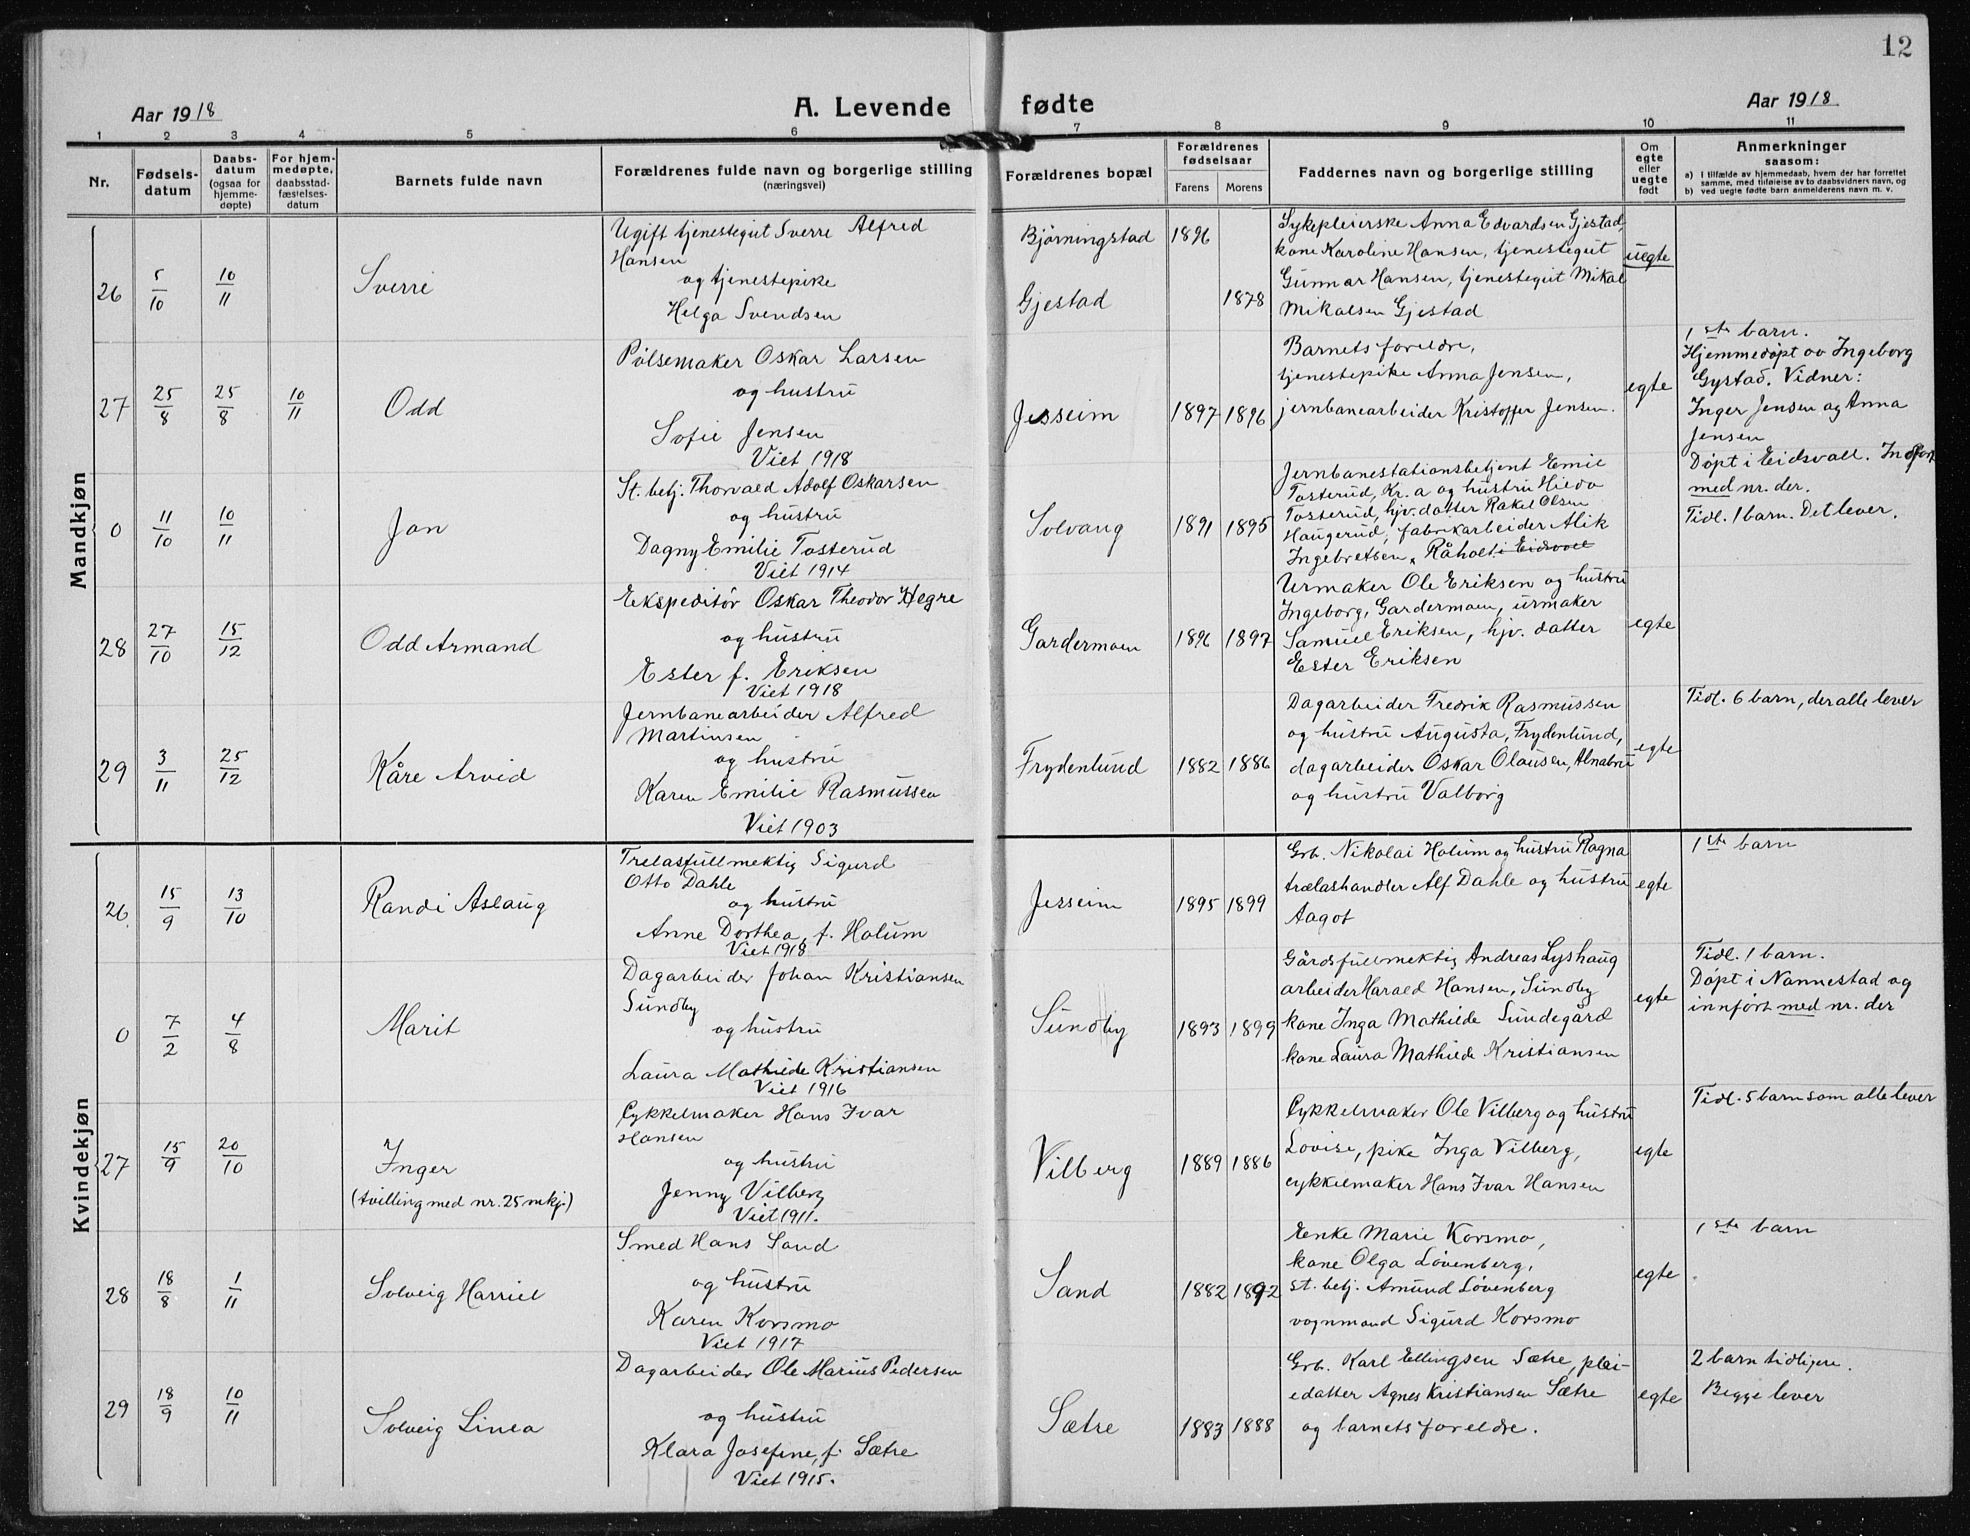 12
Aar 1918
A. Levende fødte
Aar 1918
1 2 3 4 5 6 7 8 9 10 11
Nr.
Fødsels-
datum
Daabs-
datum
(ogsaa for
hjemme-
døpte)
For hjem-
medøpte,
daabsstad-
fæstelses-
datum
Barnets fulde navn
Forældrenes fulde navn og borgerlige stilling
(næringsvei)
Forældrenes bopæl
Forældrenes
fødselsaar
Farens Morens
Faddernes navn og borgerlige stilling
Om
egte
eller
uegte
født
Anmerkninger
saasom:
a) I tilfælde av hjemmedaab, hvem der har forrettet
samme, med tilføielse av to daabsvidners navn, og
b) ved uegte fødte barn anmelderens navn m. v.
Mandkjøn
26
5/10
10/11
Sverre
Ugift tjenestegut Sverre Alfred
Hansen
og tjenestepike
Helga Svendsen
Bjørningstad
Gjestad
1896
1878
Sykepleierske Anna Edvardsen Gjestad,
kone Karoline Hansen, tjenestegut
Gunnar Hansen, tjenestegut Mikal
Mikalsen Gjestad
uegte
27
25/8
25/8
10/11
Odd
Pølsemaker Oskar Larsen
og hustru
Sofie Jensen
Viet 1918
Jesseim
1897 1896
Barnets foreldre,
tjenestepike Anna Jensen,
jernbanearbeider Kristoffer Jensen.
egte
1ste barn.
Hjemmedøpt av Ingeborg
Gystad. Vidner:
Inger Jensen og Anna
Jensen
0
11/10
10/11
Jan
St. betj. Thorvald Adolf Oskarsen
og hustru
Dagny Emilie Tosterud
Viet 1914
Solvang
1891 1895
Jernbanestationsbetjent Emil
Tosterud, Kr.a og hustru Hilda
Tosterud, hjv. datter Rakel Olsen
Haugerud, fabrikarbeider Alik
Ingebretsen, Råholt i Eidsvoll
Døpt i Eidsvall. Indført
med nr. der.
Tidl. 1 barn. Det lever.
28
27/10
15/12
Odd Armand
Ekspeditør Oskar Theodor Hegre
og hustru
Ester f. Eriksen
Viet 1918
Gardermoen
1896 1897
Urmaker Ole Eriksen og hustru
Ingeborg, Gardermoen, urmaker
Samuel Eriksen, hjv. datter
Ester Eriksen
egte
29
3/11
25/12
Kåre Arvid
Jernbanearbeider Alfred
Martinsen
og hustru
Karen Emilie Rasmussen
Viet 1903
Frydenlund
1882 1886
Dagarbeider Fredrik Rasmussen
og hustru Augusta, Frydenlund,
dagarbeider Oskar Olausen, Alnabru
og hustru Valborg
egte
Tidl. 6 barn, der alle lever
Kvindekjøn
26.
15/9
13/10
Randi Aslaug
Trelastfullmektig Sigurd
Otto Dahle
og hustru
Anne Dorthea, f. Holum
Viet 1918
Jesseim
1895 1899
Grb. Nikolai Holum og hustru Ragna
trælasthandler Alf Dahle og hustru
Aagot
egte
1ste barn
0
7/2
4/8
Marit
Dagarbeider Johan Kristiansen
Sundby
og hustru
Laura Mathilde Kristiansen
Viet 1916
Sundby
1893 1899
Gårdsfullmektig Andreas Lyshaug
arbeider Harald Hansen, Sundby
kone Inga Mathilde Sundegård
kone Laura Mathilde Kristiansen
egte
Tidl. 1 barn.
Døpt i Nannestad og
innført med nr. der
27
15/9
20/10
Inger
(tvilling med nr. 25 mkj.)
Cykkelmaker Hans Ivar
Hansen
og hustru
Jenny Vilberg
Viet 1911.
Vilberg
1889 1886
Cykkelmaker Ole Vilberg og hustru
Lovise, pike Inga Vilberg,
cykkelmaker Hans Ivar Hansen
egte
Tidl. 5 barn som alle lever
28
18/8
1/11
Solveig Harriet
Smed Hans Sand
og hustru
Karen Korsmo
Viet 1917
Sand
1882 1892
Enke Marie Korsmo,
kone Olga Løvenberg,
st. betj. Amund Løvenberg
vognmand Sigurd Korsmo
egte
1ste barn
29
18/9
10/11
Solveig Linea
Dagarbeider Ole Marius Pedersen
og hustru
Klara Josefine, f. Sætre
Viet 1915.
Sætre
1883 1888
Grb. Karl Ellingsen Sætre, plei-
edatter Agnes Kristiansen Sætre
og barnets foreldre.
egte
2 barn tidligere.
Begge lever